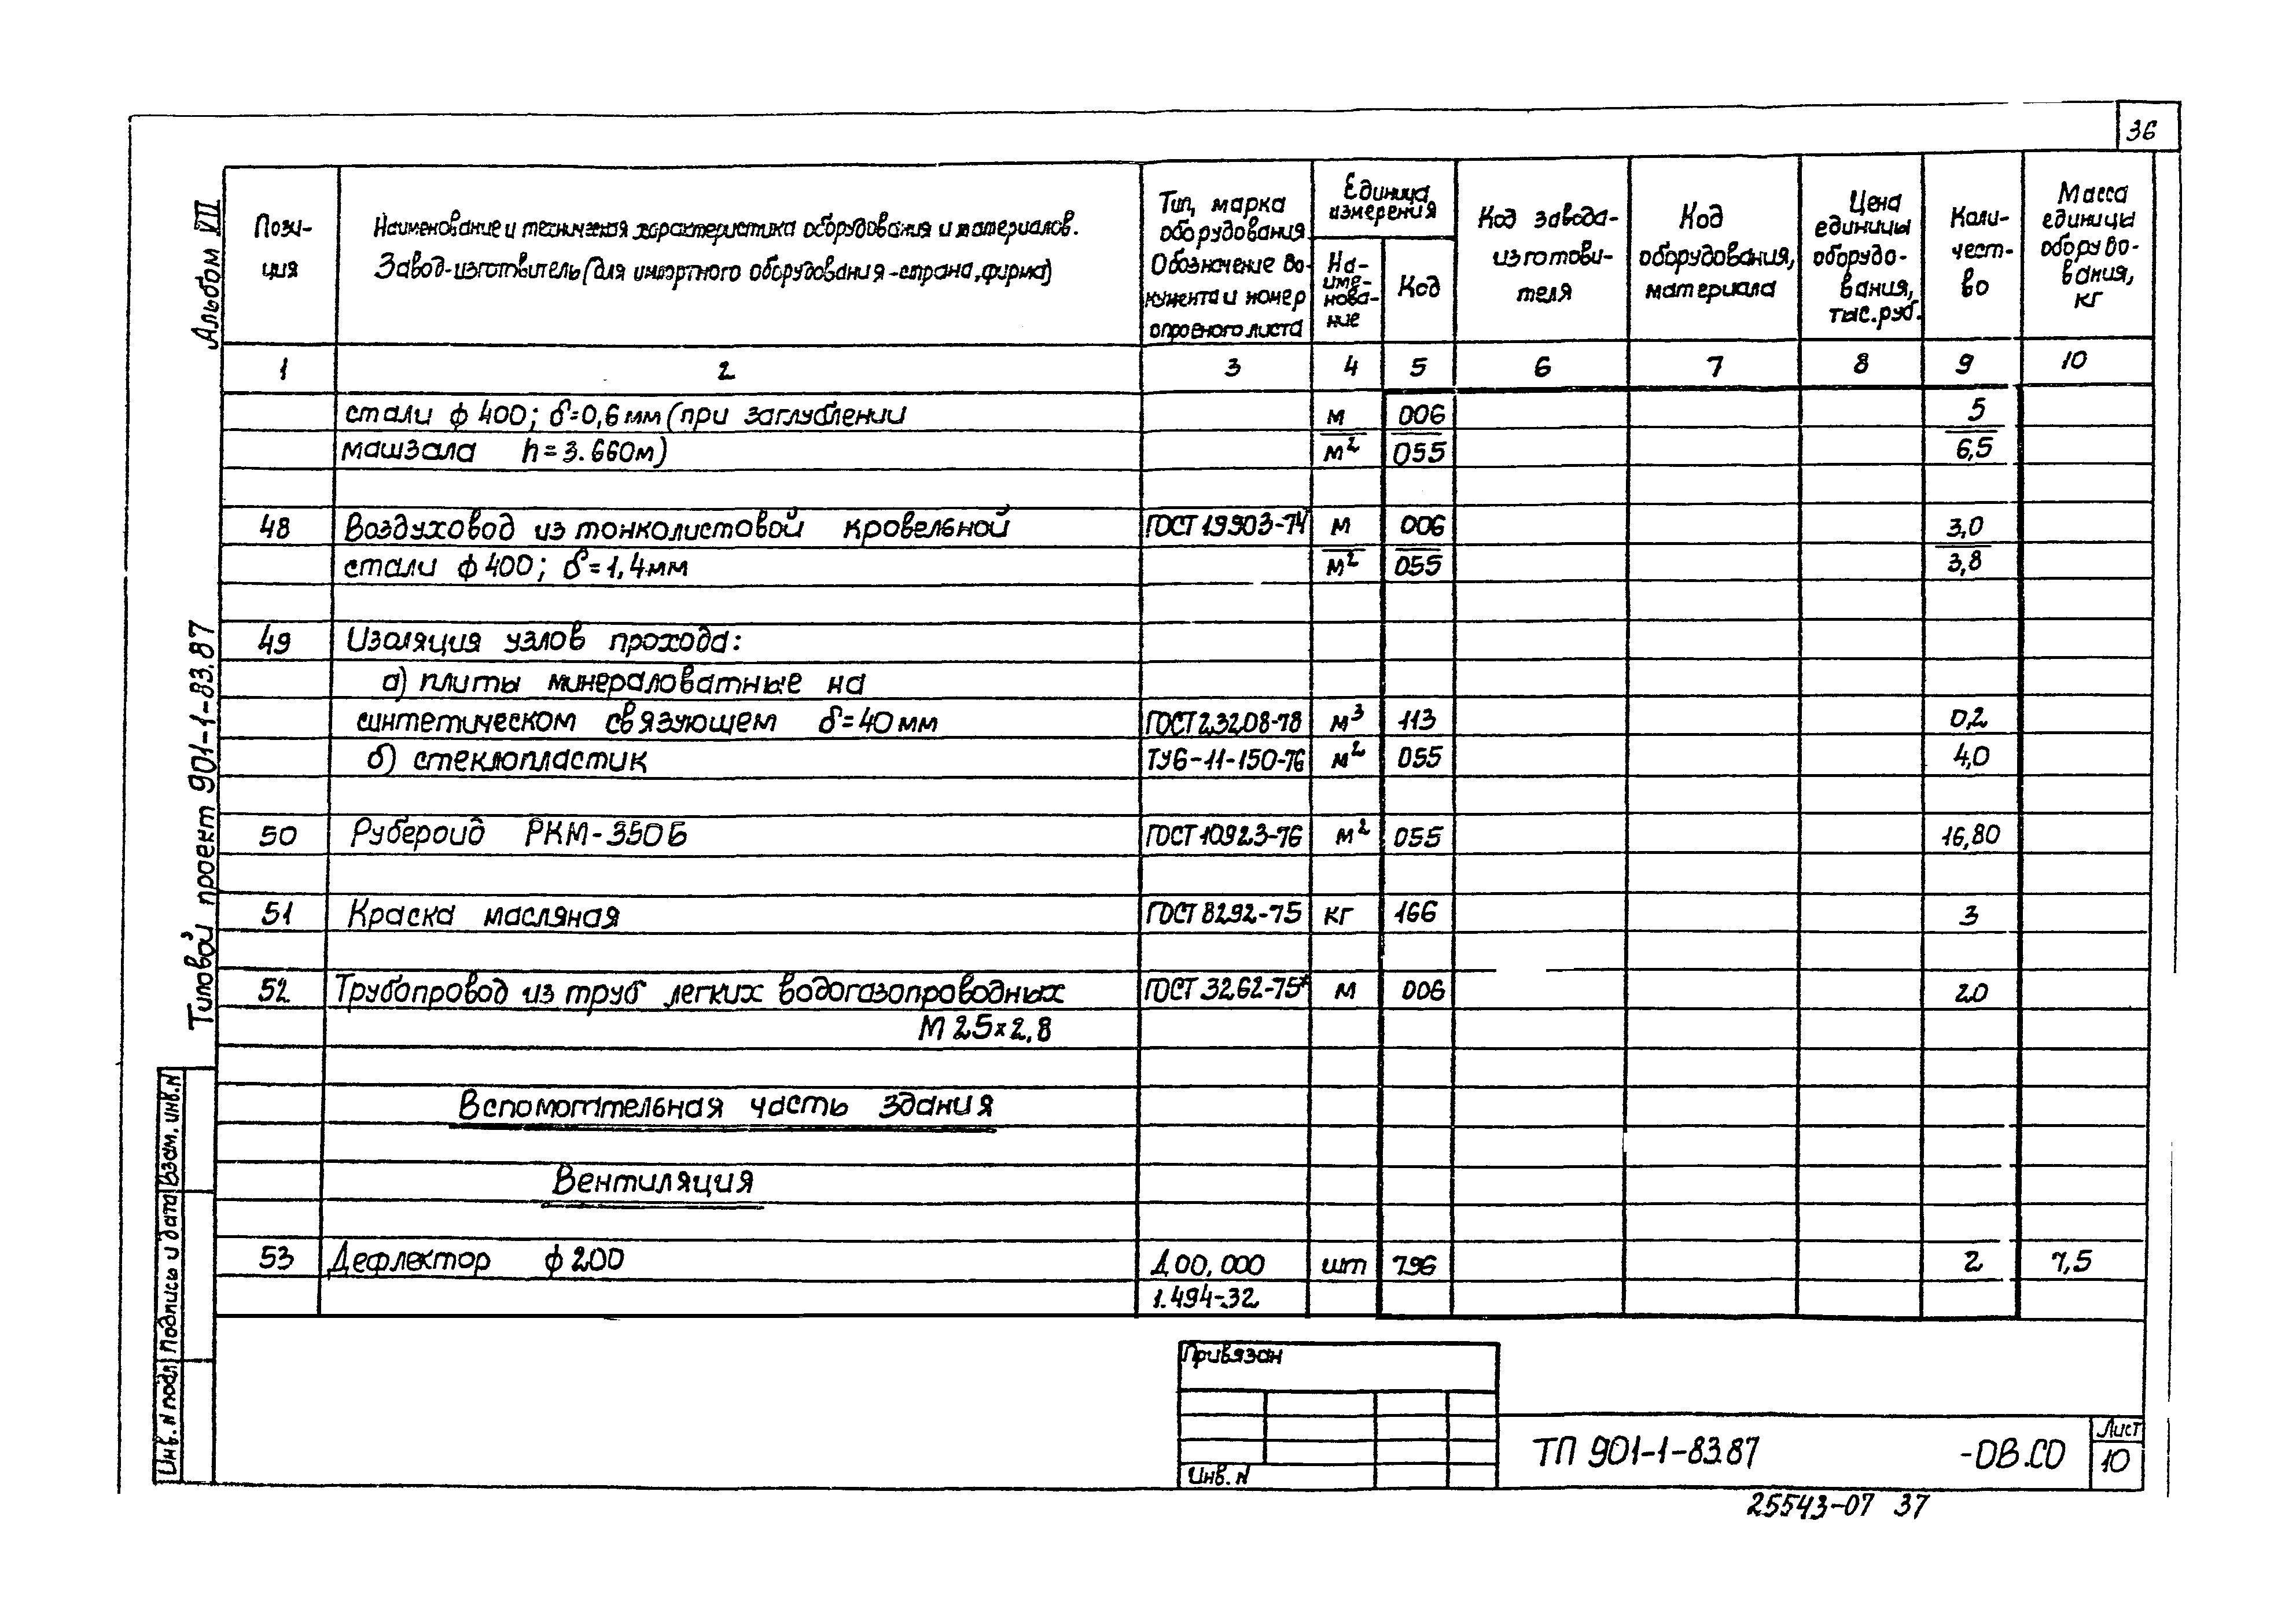 36
Альбом VII
Типовой проект 901-1-83.87
Пози-
ция
Наименование и техническая характеристика оборудования и материалов.
Завод-изготовитель (для импортного оборудования - страна, фирма)
Тип, марка
оборудования
Обозначение до-
кумента и номер
опросного листа
Единица
измерения
На-
име-
нова-
ние
Код
Код завода-
изготови-
теля
Код
оборудования,
материала
Цена
единицы
оборудо-
вания,
тыс.руб.
Коли-
чест-
во
Масса
единицы
оборудо-
вания,
кг
1 2 3 4 5 6 7 8 9 10
стали ф 400; δ=0,6 мм (при заглублении м 006 5
машзала h=3.660м) м² 055 6,5
48 Воздуховод из тонколистовой кровельной ГОСТ 19903-74 м 006 3,0
стали ф 400; δ=1,4мм м² 055 3,8
49 Изоляция узлов прохода:
а) плиты минераловатные на
синтетическом связующем δ=40 мм ГОСТ 23208-78 м³ 113 0,2
б) стеклопластик ТУ6-11-150-76 м² 055 4,0
50 Рубероид РКМ-350Б ГОСТ 10923-76 м² 055 16,80
51 Краска масляная ГОСТ 8292-75 кг 166 3
52 Трубопровод из труб легких водогазопроводных ГОСТ 3262-75* м 006 20
М 25×2,8
Вспомогательная часть здания
Вентиляция
53 Дефлектор ф 200 Д 00.000 шт 796 2 7,5
1.494-32
Взам. инв. N
Подпись и дата
Инв. N подл
Привязан
Инв. N
ТП 901-1-83.87 -ОВ.СО
Лист
10
25543-07 37